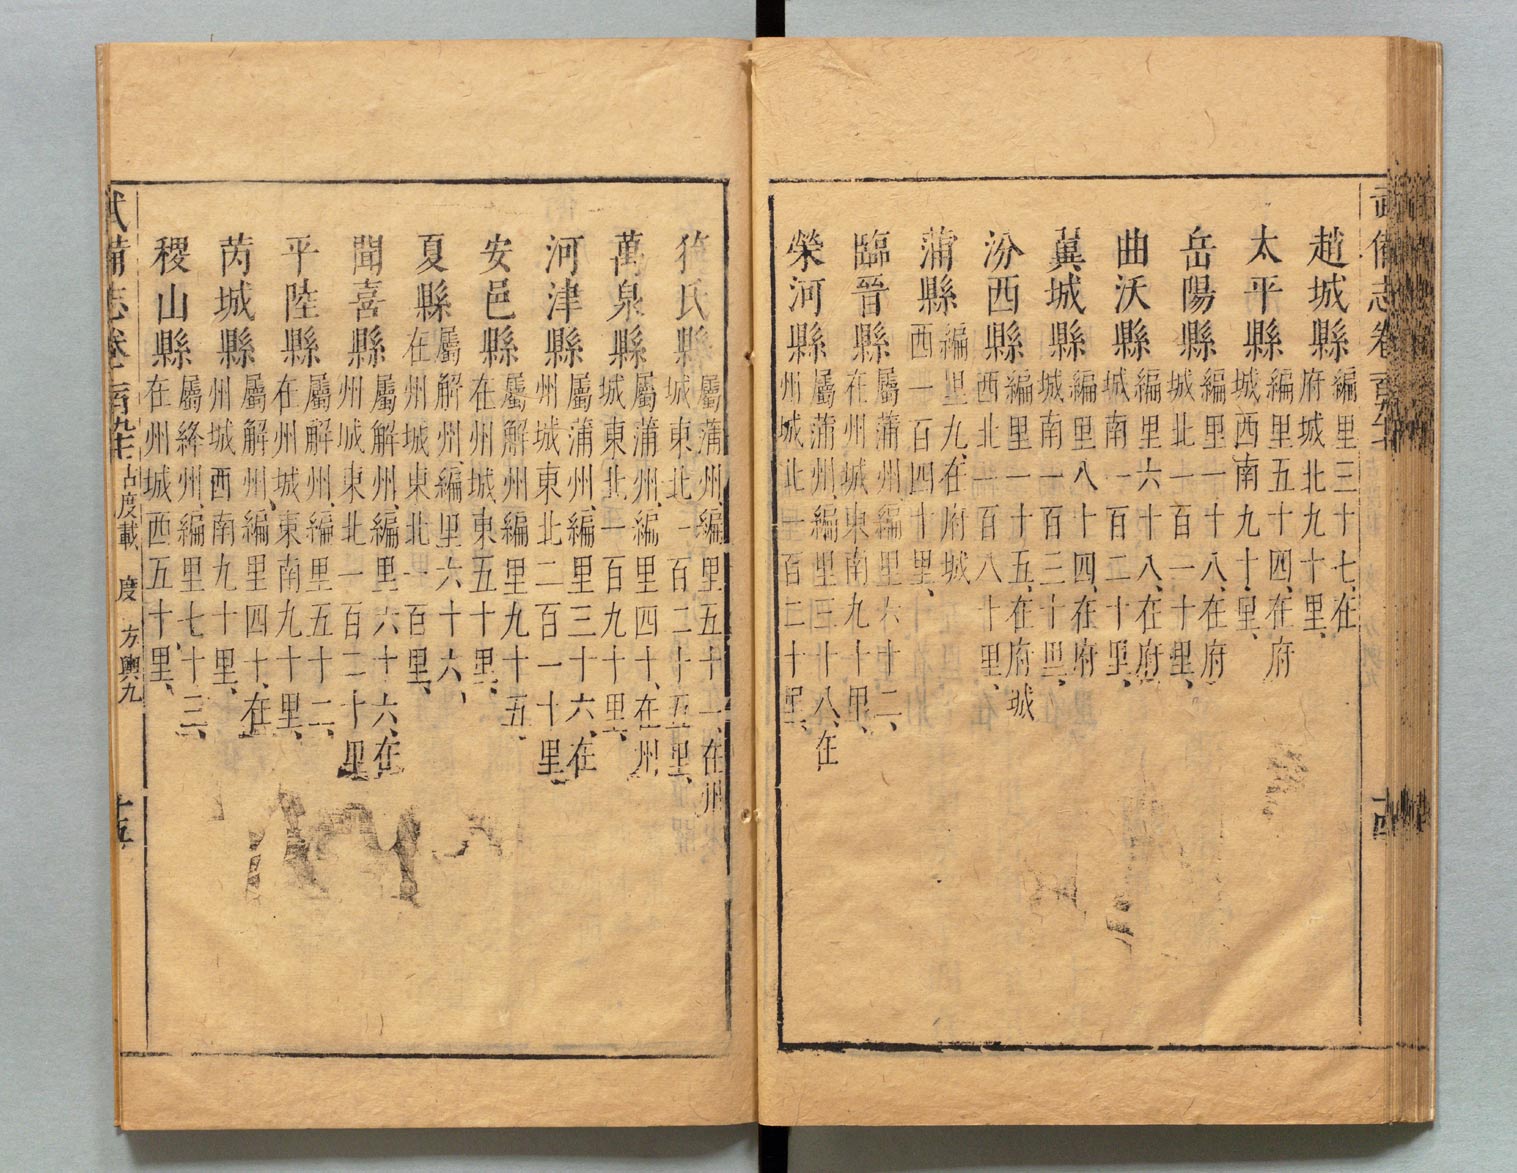 武備志卷
十四
趙城縣編里三十七、在
府城北九十里、
太平縣編里五十四、在府
城西南九十里、
岳陽縣編里一十八、在府
城北一百一十里、
曲沃縣編里六十八、在府
城南一百二十里、
翼城縣編里八十四、在府
城南一百三十里、
汾西縣編里一十五、在府城
西北一百八十里、
蒲縣編里九、在府城
西一百四十里、
臨晉縣屬蒲州編里六十二、
在州城東南九十里、
榮河縣屬蒲州、編里三十八、在
州城北一百二十里、
猗氏縣屬蒲州、編里五十一、在州
城東北一百二十五里、
萬泉縣屬蒲州、編里四十、在州
城東北一百九十里、
河津縣屬蒲州、編里三十六、在
州城東北二百一十里、
安邑縣屬解州編里九十五、
在州城東五十里、
夏縣屬解州編里六十六、
在州城東北一百里、
聞喜縣屬解州、編里六十六、在
州城東北一百二十里、
平陸縣屬解州、編里五十二、
在州城東南九十里、
芮城縣屬解州、編里四十、在
州城西南九十里、
稷山縣屬絳州、編里七十三、
在州城西五十里、
武備志卷 占度載 度 方輿九
十五